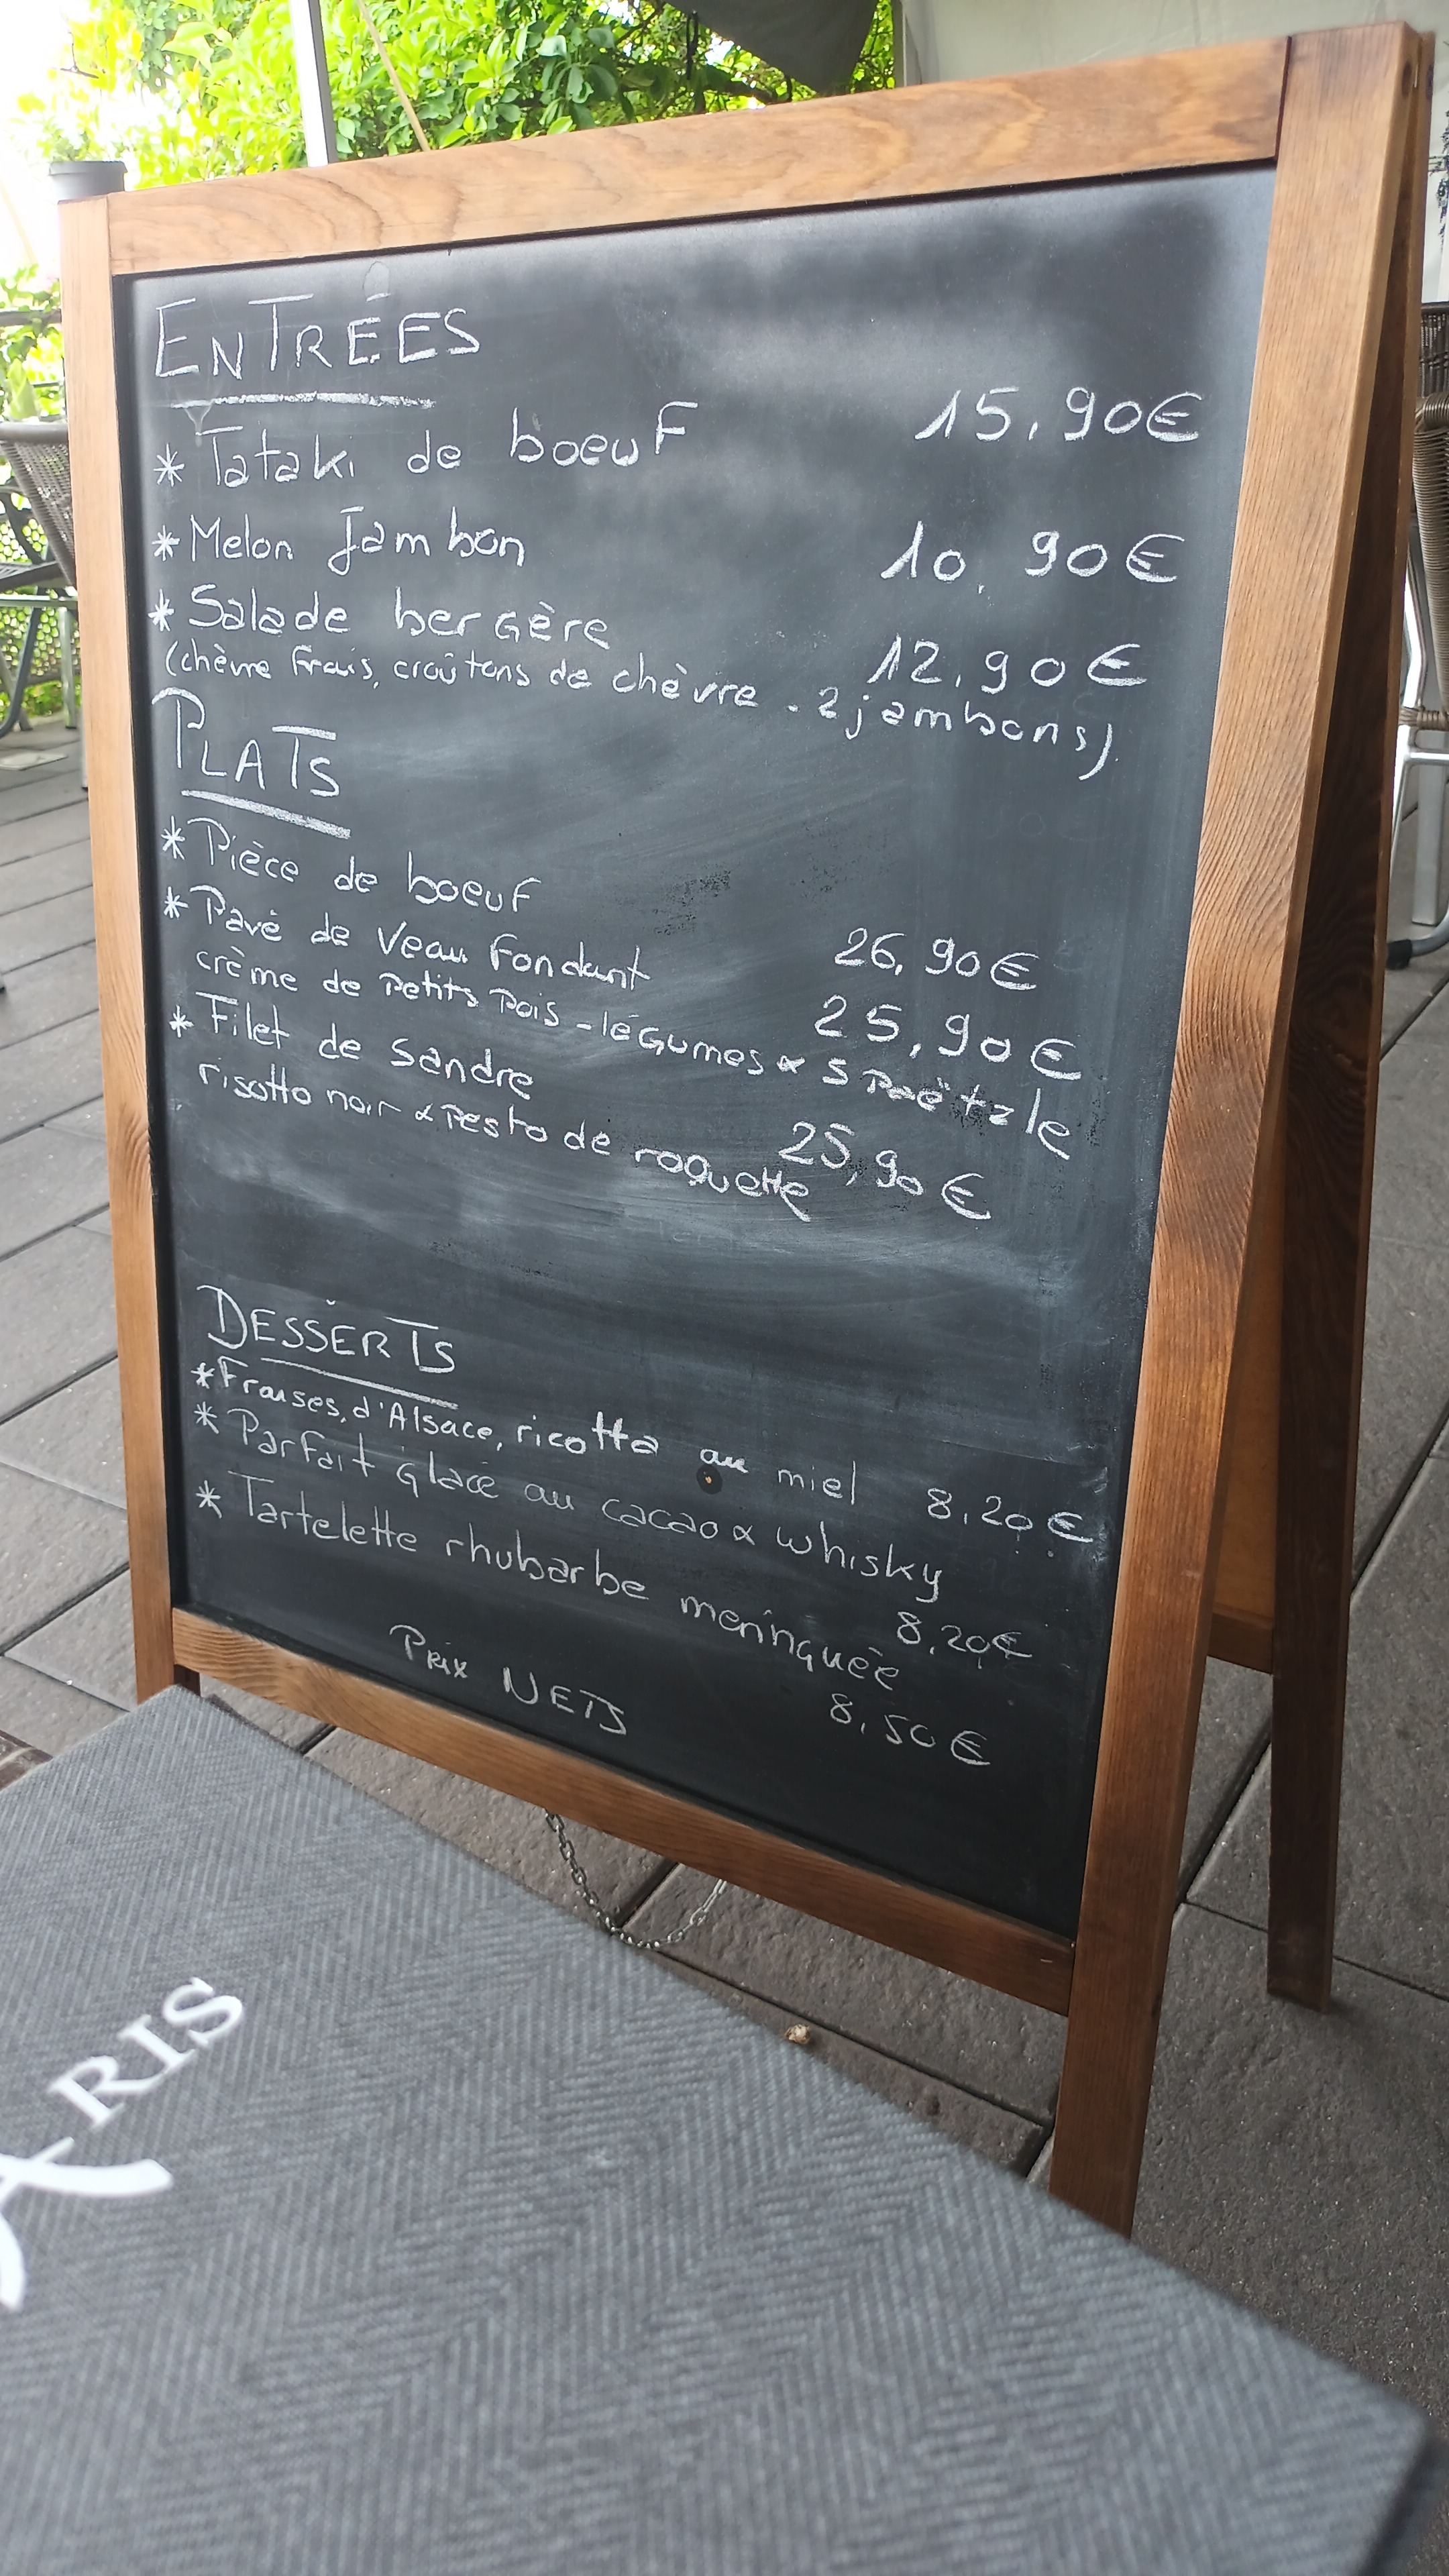 ENTRÉES
* Tataki de boeuf 15,90€
* Melon Jambon 10,90€
* Salade bergère 12,90€
(chèvre frais, croûtons de chèvre - 2 jambons)
PLATS
* Pièce de boeuf 26,90€
* Pavé de veau fondant 25,90€
crème de petits pois - légumes & spaëtzle
* Filet de sandre 25,90€
risotto noir & pesto de roquette
DESSERTS
* Fraises, d'Alsace, ricotta au miel 8,20€
* Parfait glacé au cacao & whisky 8,20€
* Tartelette rhubarbe meringuée 8,50€
PRIX NETS
RIS